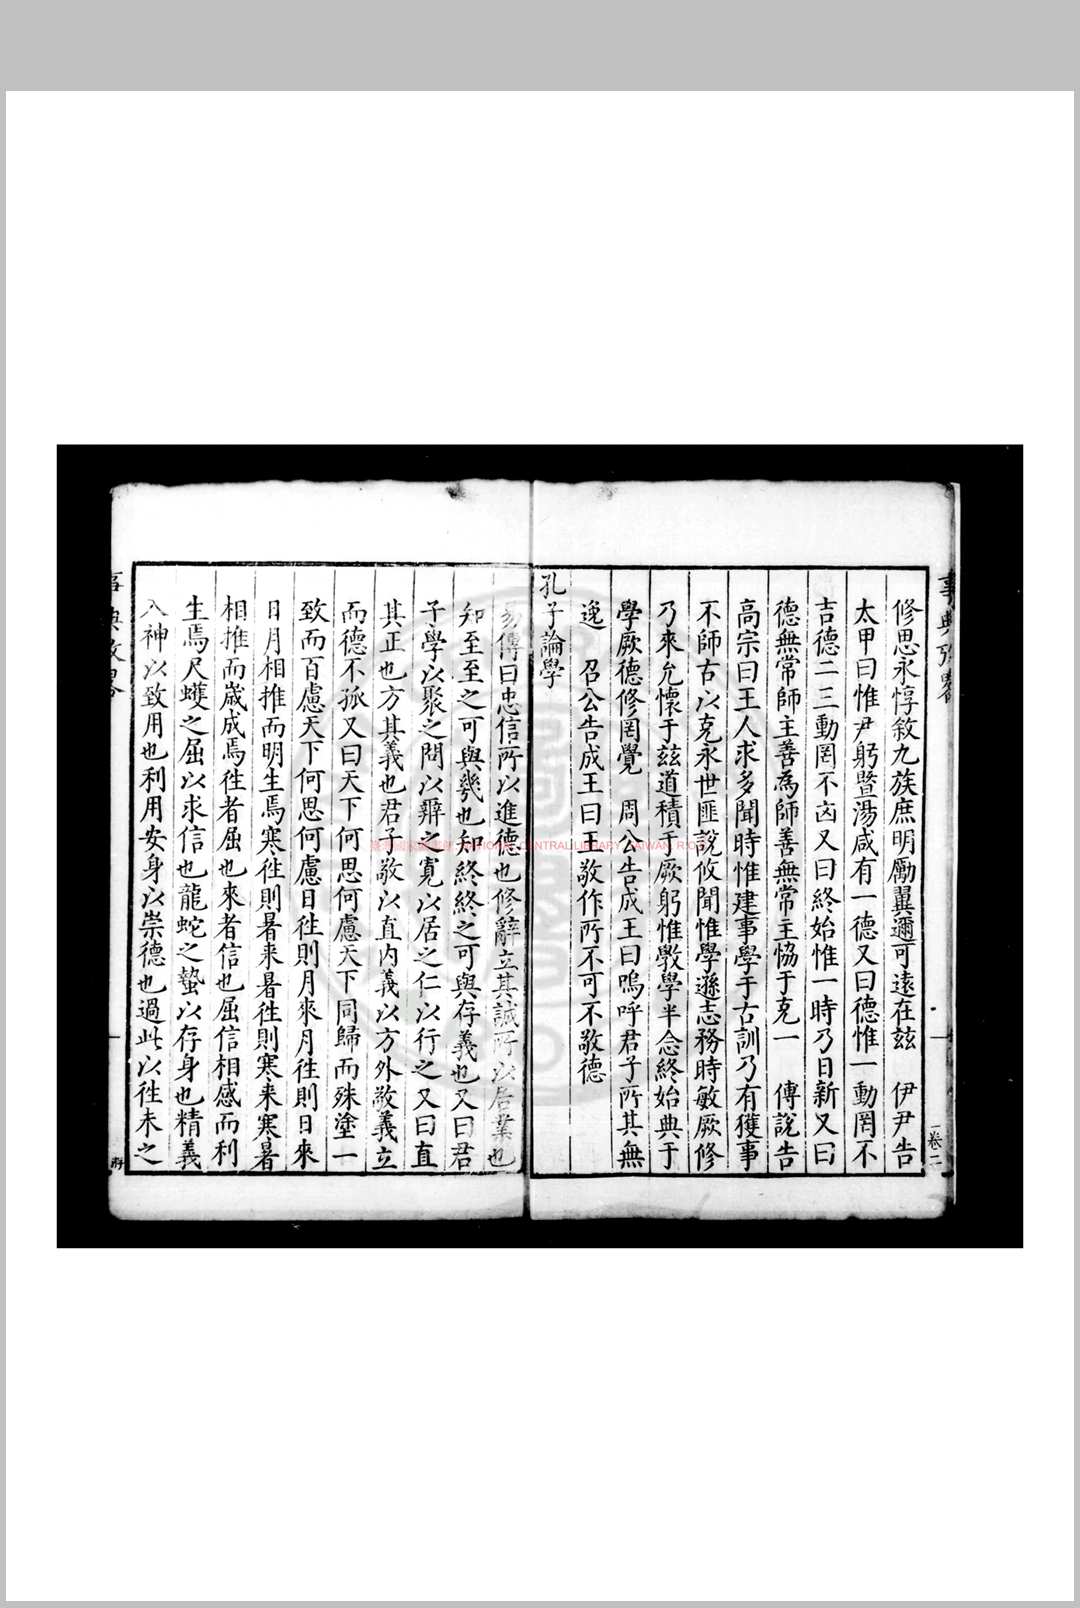 事典考畧
卷二
修思永惇敘九族庶明勵翼邇可遠在兹　伊尹告
太甲曰惟尹躬暨湯咸有一德又曰德惟一動罔不
吉德二三動罔不凶又曰終始惟一時乃日新又曰
德無常師主善爲師善無常主恊于克一　傳說告
高宗曰王人求多聞時惟建事學于古訓乃有獲事
不師古以克永世匪說攸聞惟學遜志務時敏厥修
乃來允懷于兹道積于厥躬惟斆學半念終始典于
學厥德修罔覺　周公告成王曰嗚呼君子所其無
逸　召公告成王曰王敬作所不可不敬德
孔子論學
易傳曰忠信所以進德也修辭立其誠所以居業也
知至至之可與幾也知終終之可與存義也又曰君
子學以聚之問以辯之寬以居之仁以行之又曰直
其正也方其義也君子敬以直内義以方外敬義立
而德不孤又曰天下何思何慮天下同歸而殊塗一
致而百慮天下何思何慮日徃則月來月徃則日來
日月相推而明生焉寒徃則暑来暑徃則寒来寒暑
相推而歲成焉徃者屈也來者信也屈信相感而利
生焉尺蠖之屈以求信也龍蛇之蟄以存身也精義
入神以致用也利用安身以崇德也過此以徃未之
NATIONAL CENTRAL LIBRARY, TAIWAN, R.O.C